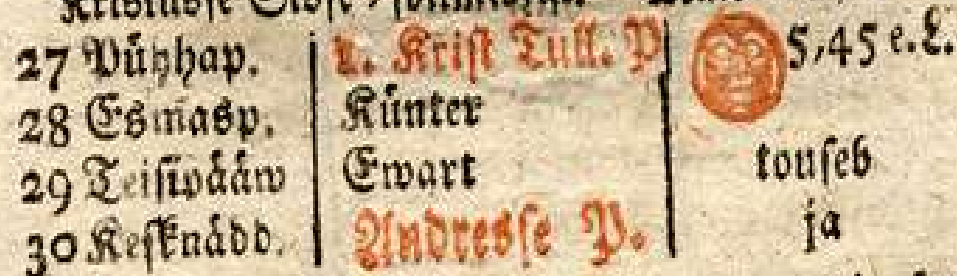 27 Pühhap. 1. Krist Tull. P 5,45 e. L.
28 Esmasp. Künter
29 Teisipääw Ewart touseb
30 Kesknädd. Andresse P. ja